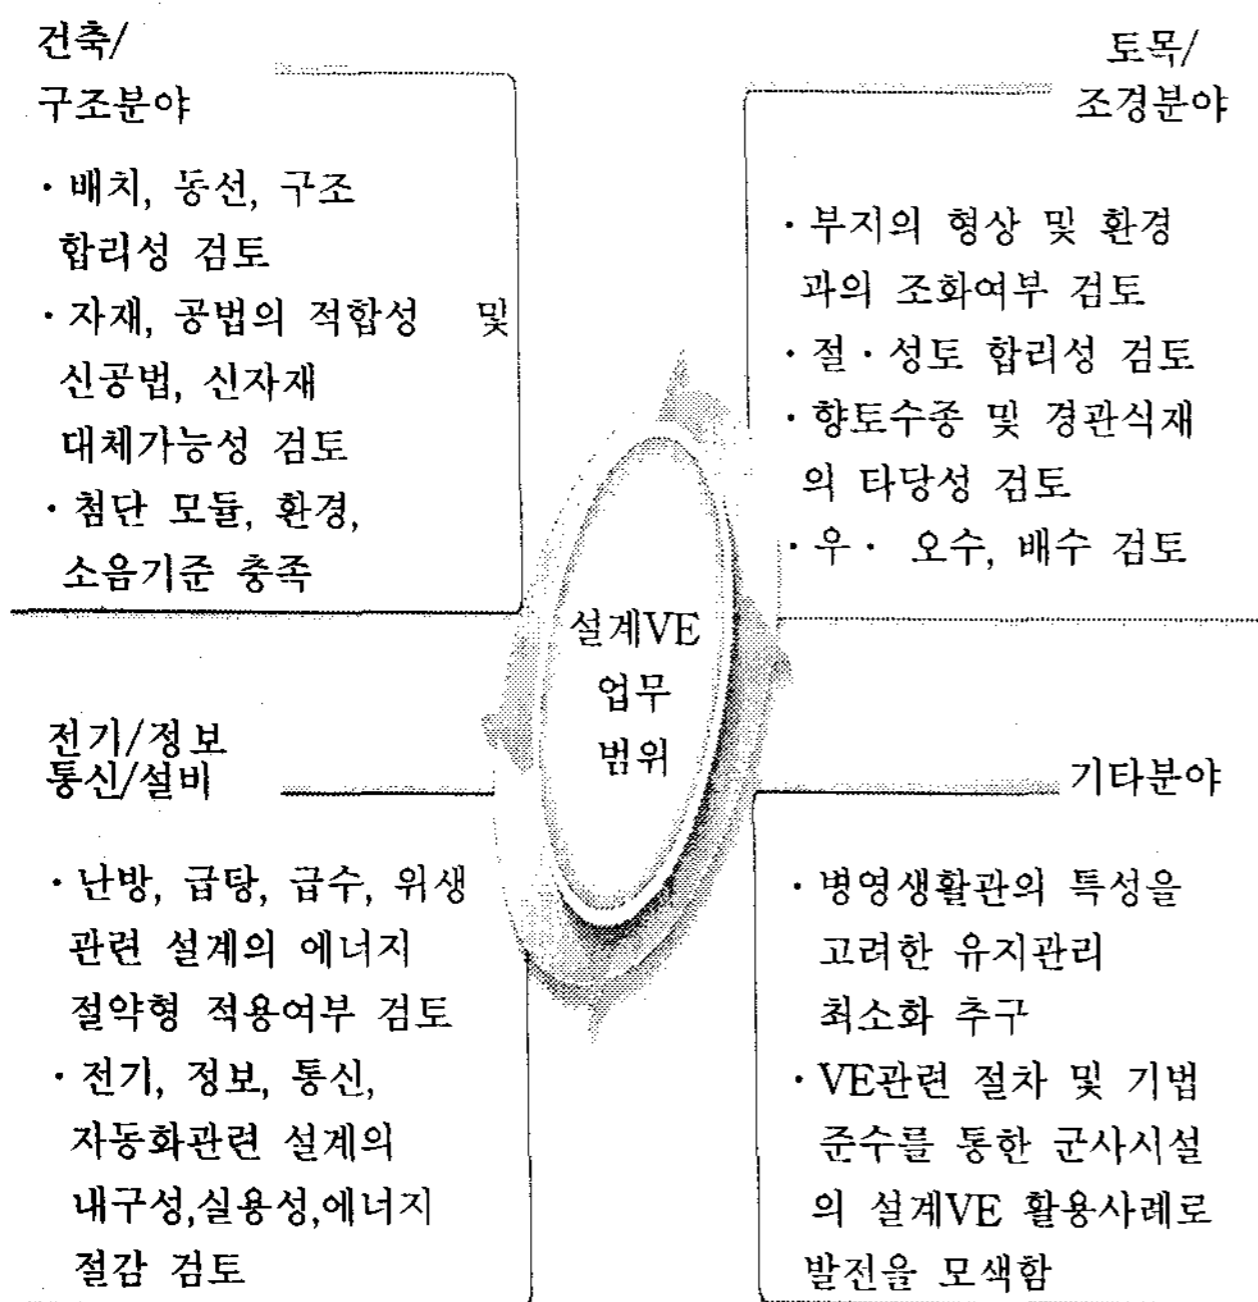 건축/
구조분야
· 배치, 동선, 구조
합리성 검토
· 자재, 공법의 적합성 및
신공법, 신자재
대체가능성 검토
· 첨단 모듈, 환경,
소음기준 충족
토목/
조경분야
· 부지의 형상 및 환경
과의 조화여부 검토
· 절 · 성토 합리성 검토
· 향토수종 및 경관식재
의 타당성 검토
· 우 · 오수, 배수 검토
설계VE
업무
범위
전기/정보
통신/설비
· 난방, 급탕, 급수, 위생
관련 설계의 에너지
절약형 적용여부 검토
· 전기, 정보, 통신,
자동화관련 설계의
내구성,실용성,에너지
절감 검토
기타분야
· 병영생활관의 특성을
고려한 유지관리
최소화 추구
· VE관련 절차 및 기법
준수를 통한 군사시설
의 설계VE 활용사례로
발전을 모색함